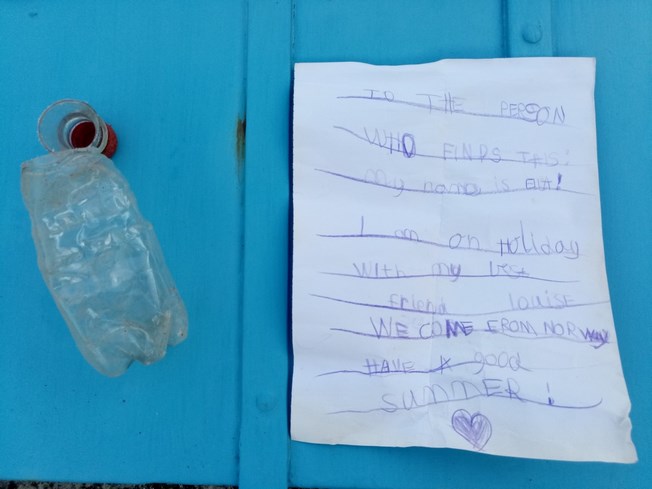 TO THE PERSON
WHO FINDS THIS!
My name is
I am on Holiday
With my best
friend louise
WE COME FROM NORWAY
HAVE A good
SUMMER!